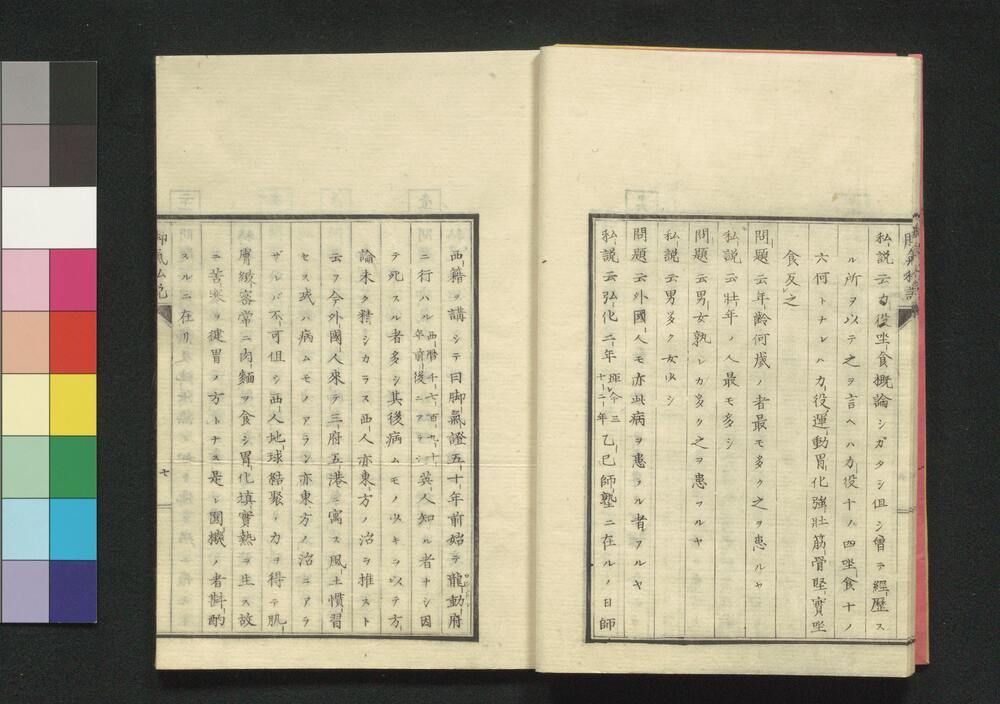 私説云力役坐食概論シガタシ但シ曽テ經歴ス
ル所ヲ以テ之ヲ言ヘハ力役十ノ四坐食十ノ
六何トナレハ力役運動胃化強壯筋骨堅實坐
食反之
問題云年齡何歳ノ者最モ多ク之ヲ患ルヤ
私説云壯年ノ人最モ多シ
問題云男女孰レカ多ク之ヲ患フルヤ
私説云男多ク女少シ
問題云外國人モ亦此病ヲ患フル者アルヤ
私説云弘化二年 距今三十二年 乙巳師塾ニ在ルノ日師
西籍ヲ講シテ曰脚氣證五十年前始テ龍動府
ニ行ハル 西暦千七百九十年前後ニアタル 英人知ル者ナシ因
テ死スル者多シ其後病ムモノ少キヲ以テ方
論未タ精シカラス西人亦東方ノ治ヲ推スト
云フ今外國人來テ三府五港ニ寓ス風土慣習
セス或ハ病ムモノアラン亦東方ノ治ニアラ
ザレバ不可但シ西人地球結聚ノ力ヲ得テ肌
膚緻密常ニ肉麵ヲ食シ胃化填實熱ヲ生ス故
ニ苦寒ヲ健胃ノ方トナス是レ圓機ノ者斟酌
スルニ在リ
七